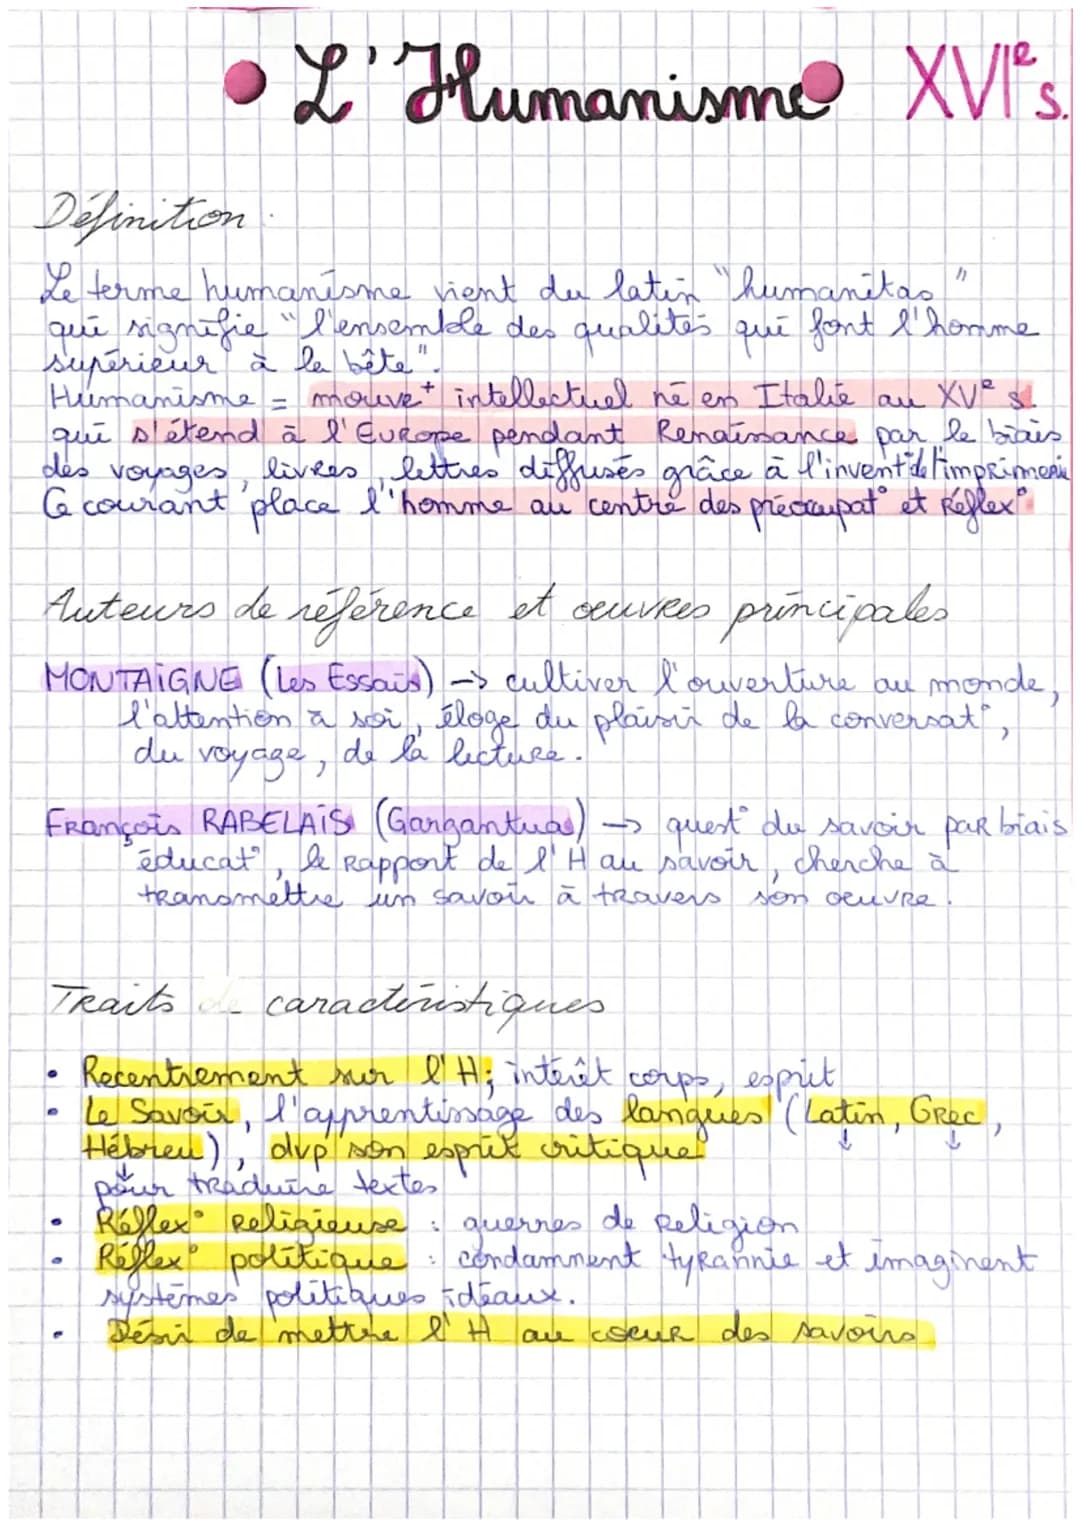 • L'Humanisme • XVIe s.
Définition :
Le terme humanisme vient du latin "humanitas"
qui signifie "l'ensemble des qualités qui font l'homme
supérieur à la bête".
Humanisme = mouve+ intellectuel né en Italie au XVe s.
qui s'étend à l'Europe pendant Renaissance par le biais
des voyages, livres, lettres diffusés grâce à l'invent° de l'imprimerie
Ce courant place l'homme au centre des préoccupat° et réflex°
Auteurs de référence et œuvres principales
MONTAIGNE (Les Essais) → cultiver l'ouverture au monde,
l'attention à soi, éloge du plaisir de la conversat°,
du voyage, de la lecture.
François RABELAIS (Gargantua) → quest° du savoir par biais
éducat°, le rapport de l'H au savoir, cherche à
transmettre un savoir à travers son oeuvre.
Traits de caractéristiques
• Recentrement sur l'H; intérêt corps, esprit
• Le Savoir, l'apprentissage des langues (Latin, Grec,
Hébreu), dvp son esprit critique
↓ ↓ ↓
pour traduire textes
• Réflex° religieuse : guerres de religion
• Réflex° politique : condamnent tyrannie et imaginent
systèmes politiques idéaux.
• Désir de mettre l'H au coeur des savoirs